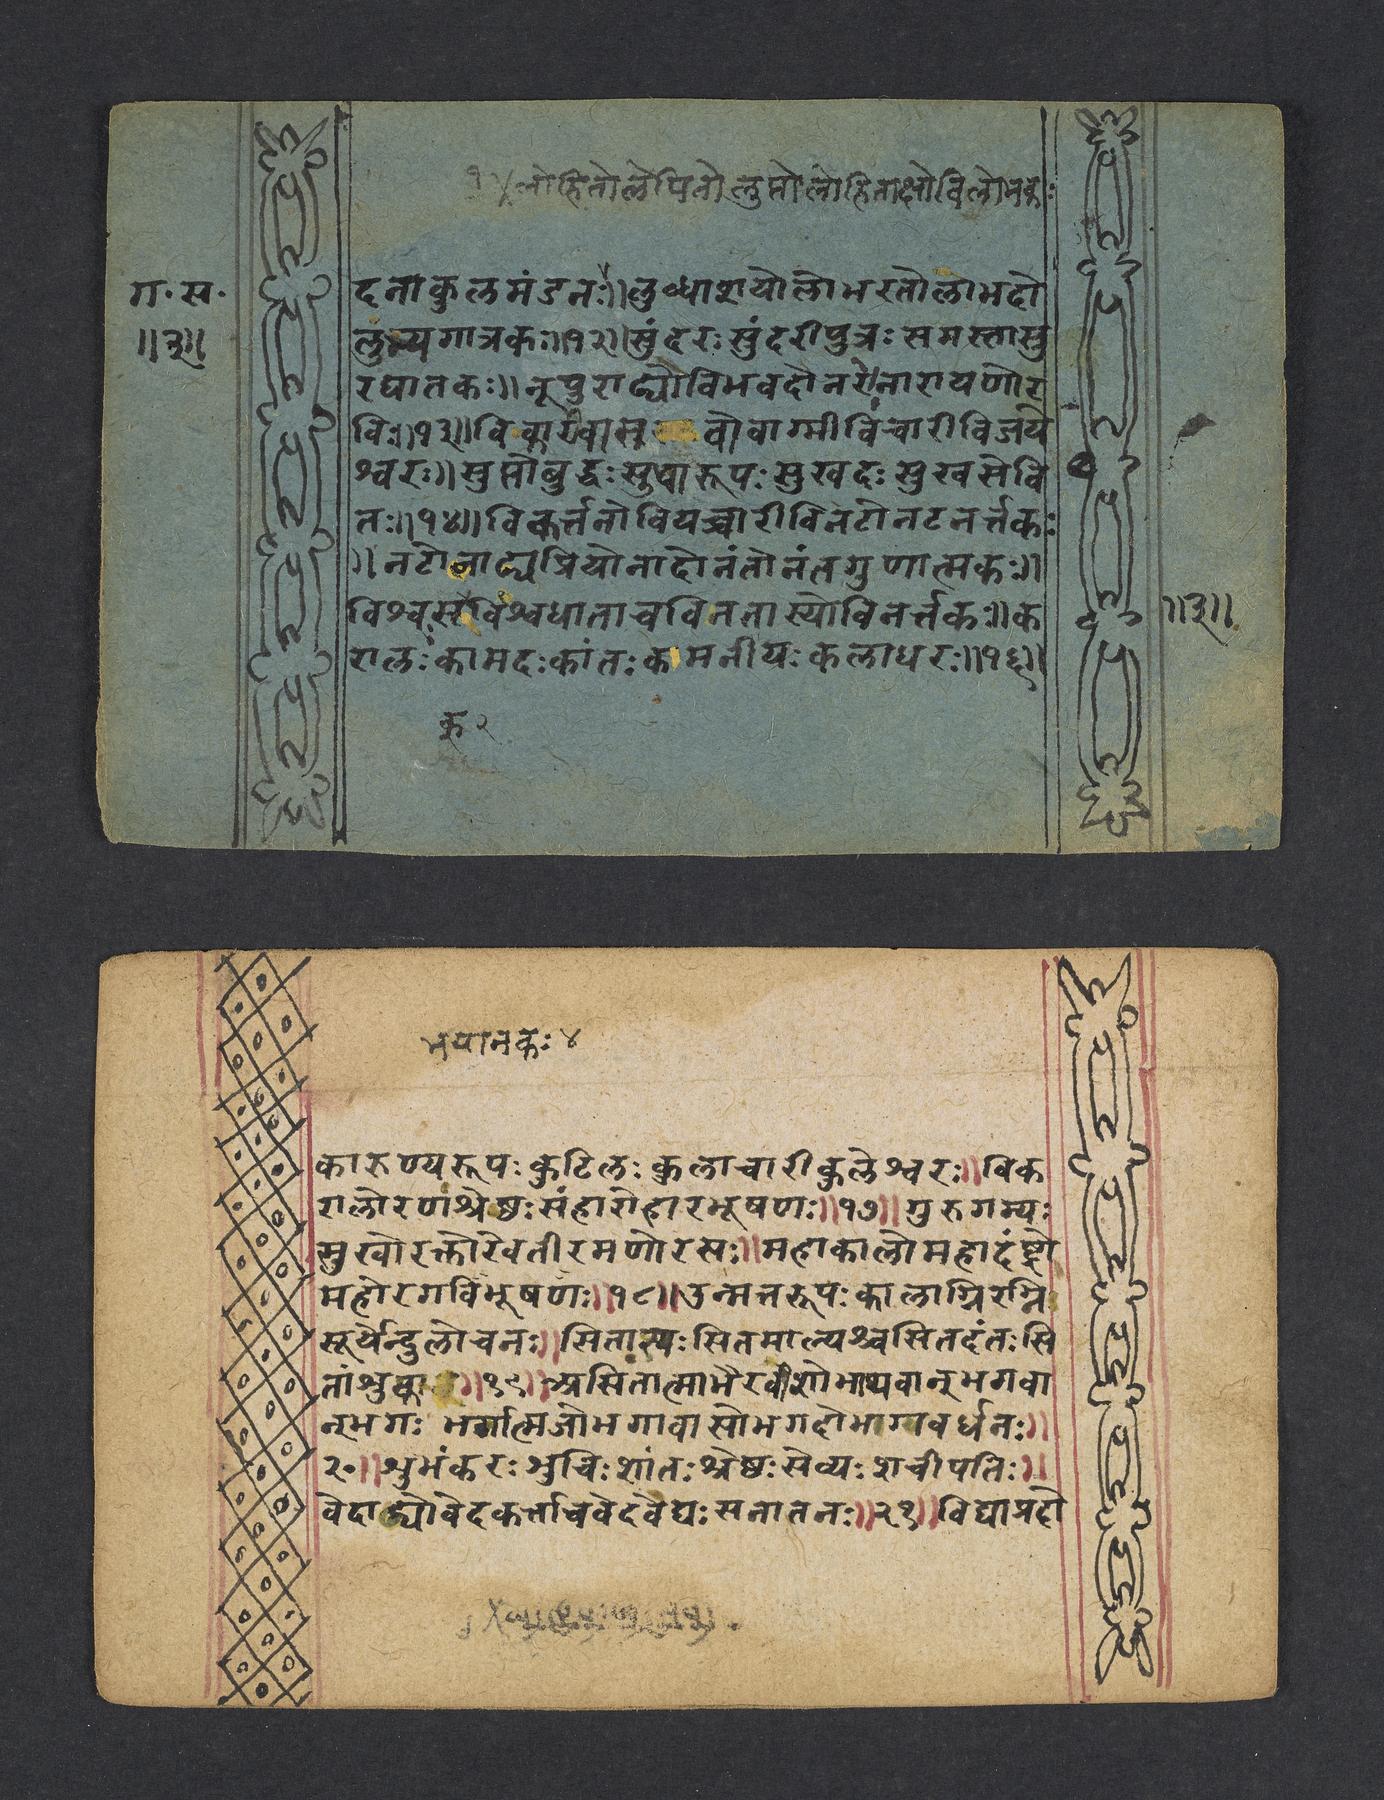 १ लोहितोलेपितोलुप्तोलोहिताक्षोविलोमकः
ग॰स॰
॥३॥
दनाकुलमंडनः॥लुब्धाशयोलोभरतोलाभदो
लुभ्यगात्रकः॥१२॥सुंदरःसुंदरीपुत्रःसमस्तासु
रघातकः॥नूपुराढ्योविभवदोनरोनारायणोर
विः॥१३॥वि वोवाग्मीविचारीविजये
श्वरः॥सुप्तोबुद्धःसुधारूपःसुखदःसुखसेवि
तः॥१४॥विकर्त्तनोवियच्चारीविनटोनटनर्त्तकः
॥नटोनाट्यप्रियोनादोनंतोनंतगुणात्मकः॥
विश्वसविश्वधाताचविनतास्योविनर्त्तकः॥क
रालःकामदःकांतःकमनीयःकलाधरः॥१६॥
॥३॥
क २
भयानकः ४
कारुण्यरूपःकुटिलःकुलाचारीकुलेश्वरः॥विक
रालोरणश्रेष्ठःसंहारोहारभूषणः॥१७॥गुरुगम्यः
सुखोरक्तोरेवतीरमणोरसः॥महाकालोमहादंष्ट्रो
महोरगविभूषणः॥१८॥उन्मत्तरूपःकालाग्निरग्नि
सूर्येन्दुलोचनः॥सितास्यःसितमाल्यश्चसितदंतःसि
तांशु ॥१९॥असितात्माभैरवीशोभाग्यवान्भगवा
न्भगः भर्गात्मजोभगावासोभगदोभाग्यवर्धनः॥
२०॥शुभंकरःशुचिःशांतःश्रेष्ठःसेव्यःशचीपतिः॥
वेदाढ्योवेदकर्त्ताचवेदवेद्यःसनातनः॥२१॥विद्याप्रदो